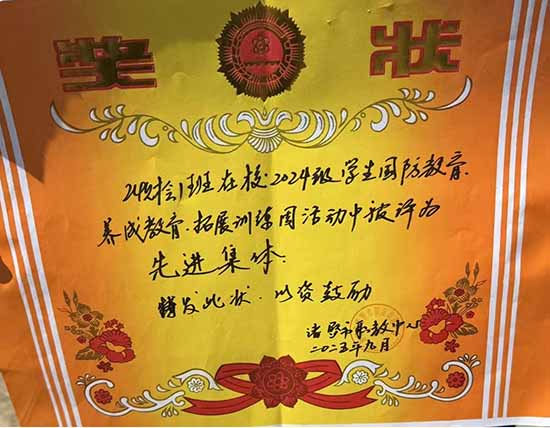 奖状
1班在校2024级学生国防教育、
养成教育、拓展训练周活动中被评为
先进集体.
特发此状.以资鼓励
诸暨市职教中心
二〇二五年九月